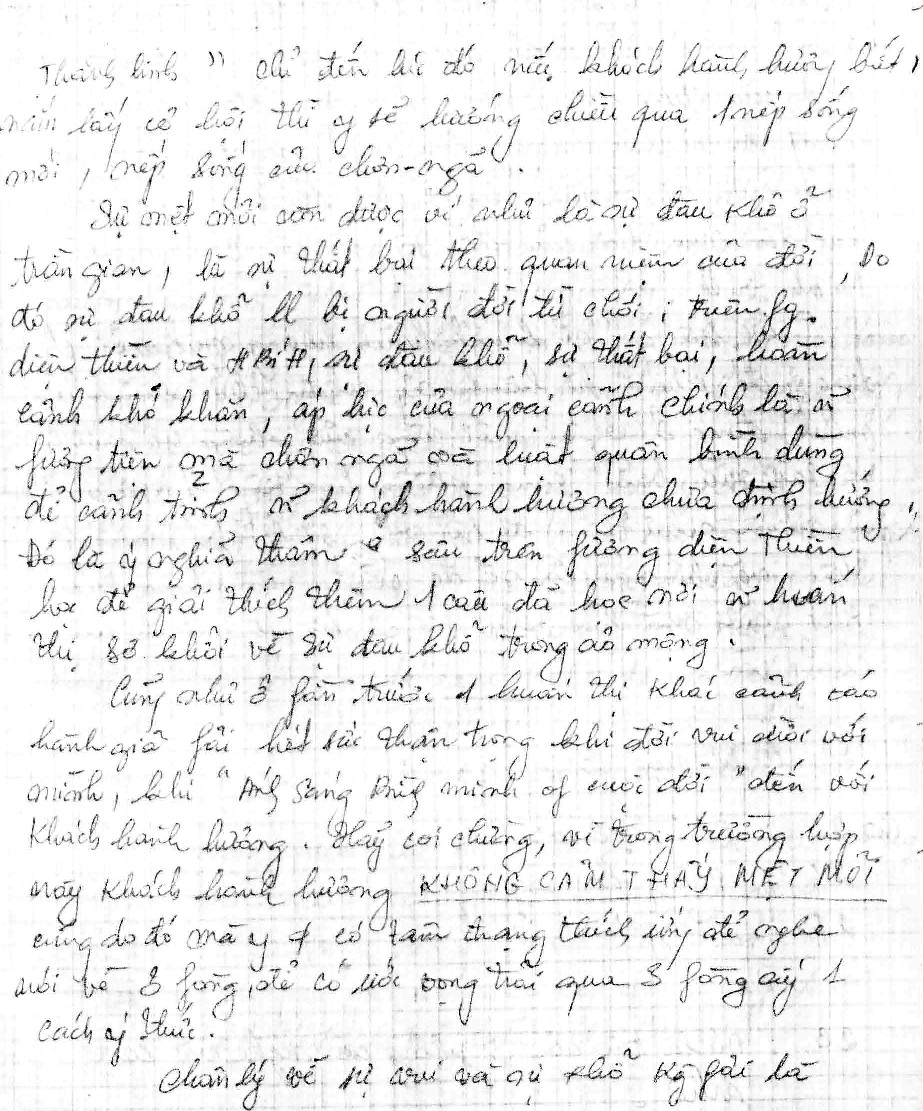 Thánh linh" chỉ đến lúc đó nếu khách hành hương biết,
nắm lấy cơ hội thì y sẽ hướng chiều qua 1 nếp sống
mới, nếp sống của chơn-ngã.
Sự mệt mỏi còn được ví như là sự đau khổ ở
trần gian, là sự thất bại theo quan niệm của đời, Do
đó sự đau khổ bị người đời từ chối; trên fg.
diện thiền và HBíH, sự đau khổ, sự thất bại, hoàn
cảnh khó khăn, áp lực của ngoại cảnh chính là
fương tiện mà chơn ngã và luật quân bình dùng
để cảnh tỉnh khách hành hương chưa định hướng,
Đó là ý nghĩa thâm sâu trên fương diện Thiền
học để giải thích thêm 1 câu đã học nơi huấn
thị sơ khởi về sự đau khổ trong ảo mộng.
Cũng như ở fần trước 1 huấn thị khác cảnh cáo
hành giả fải hết sức thận trọng khi đời vui đối với
mình, khi "Ánh Sáng Bình minh of cuộc đời" đến với
Khách hành hương. Hãy coi chừng, vì trong trường hợp
này Khách hành hương KHÔNG CẢM THẤY MỆT MỎI
cũng do đó mà y có tâm trạng thích ứng để nghe
nói về 3 fòng, để có ước vọng trải qua 3 fòng ấy 1
cách ý thức.
Chân lý về sự vui và sự khổ kg fải là